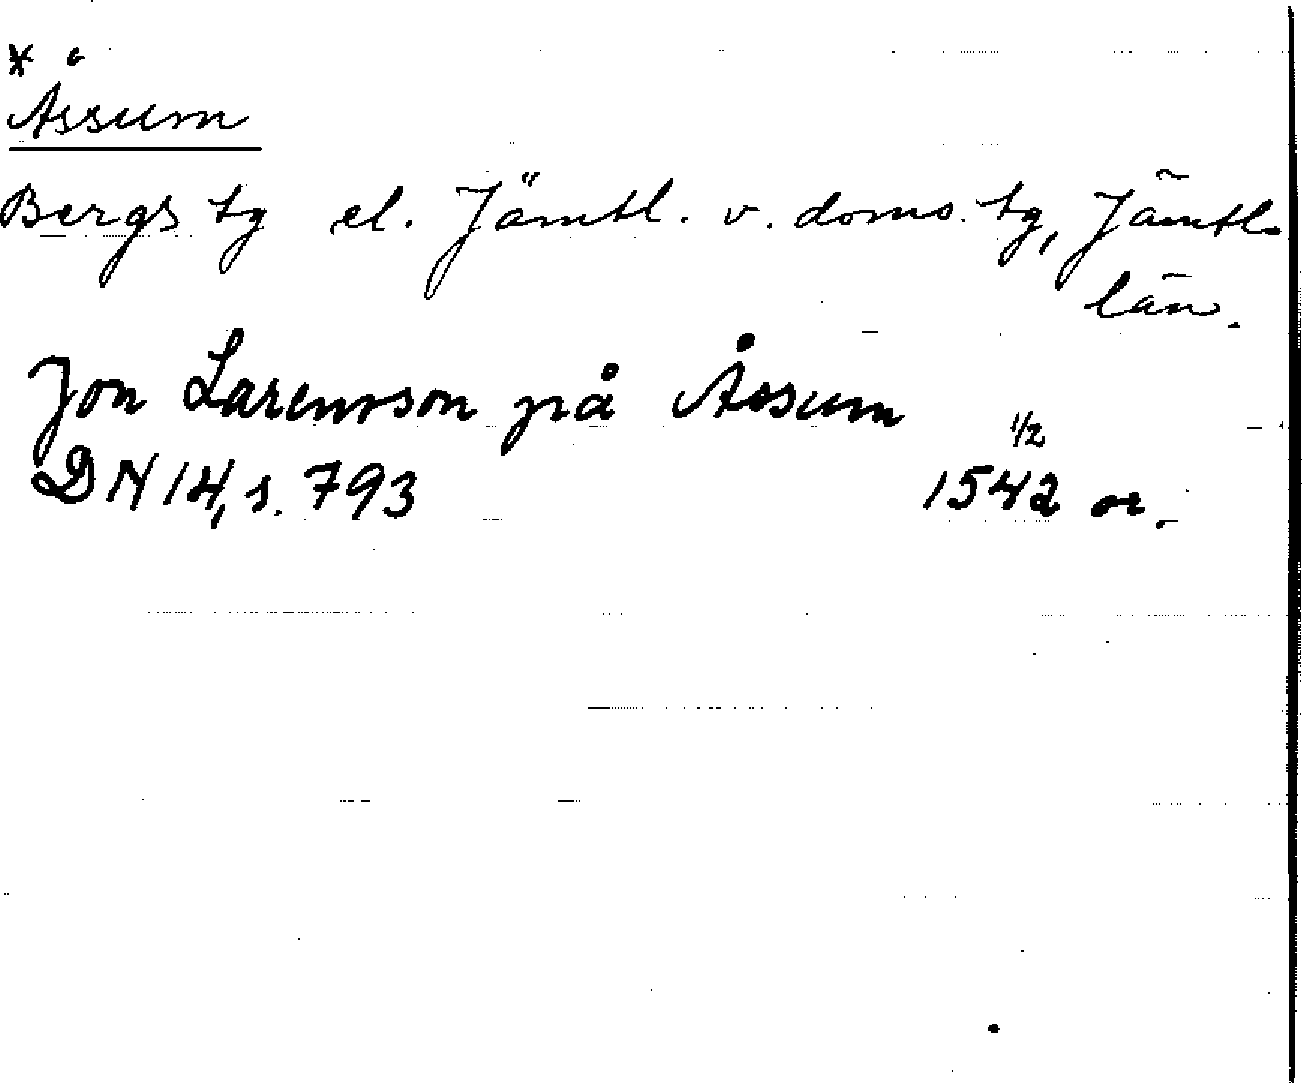 * Åssum
Bergs tg el. Jämtl. v. doms. tg, Jämtl.
län.
Jon Larensson på Åssum
1/2
DN 14, s. 793 1542 or.